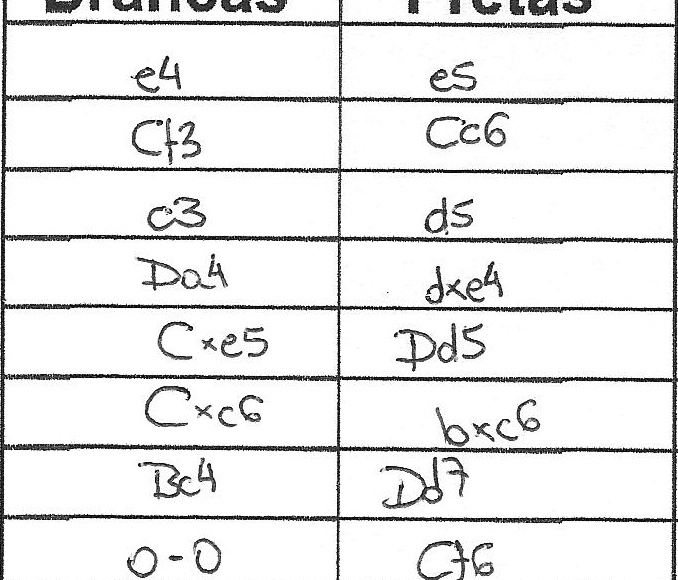 Brancas Pretas
e4 e5
Cf3 Cc6
c3 d5
Da4 dxe4
Cxe5 Dd5
Cxc6 bxc6
Bc4 Dd7
0-0 Cf6